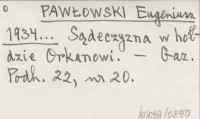 o PAWŁOWSKI Eugeniusz
1934... Sądeczyzna w hoł-
dzie Orkanowi. — Gaz.
Podh. 22, nr 20.